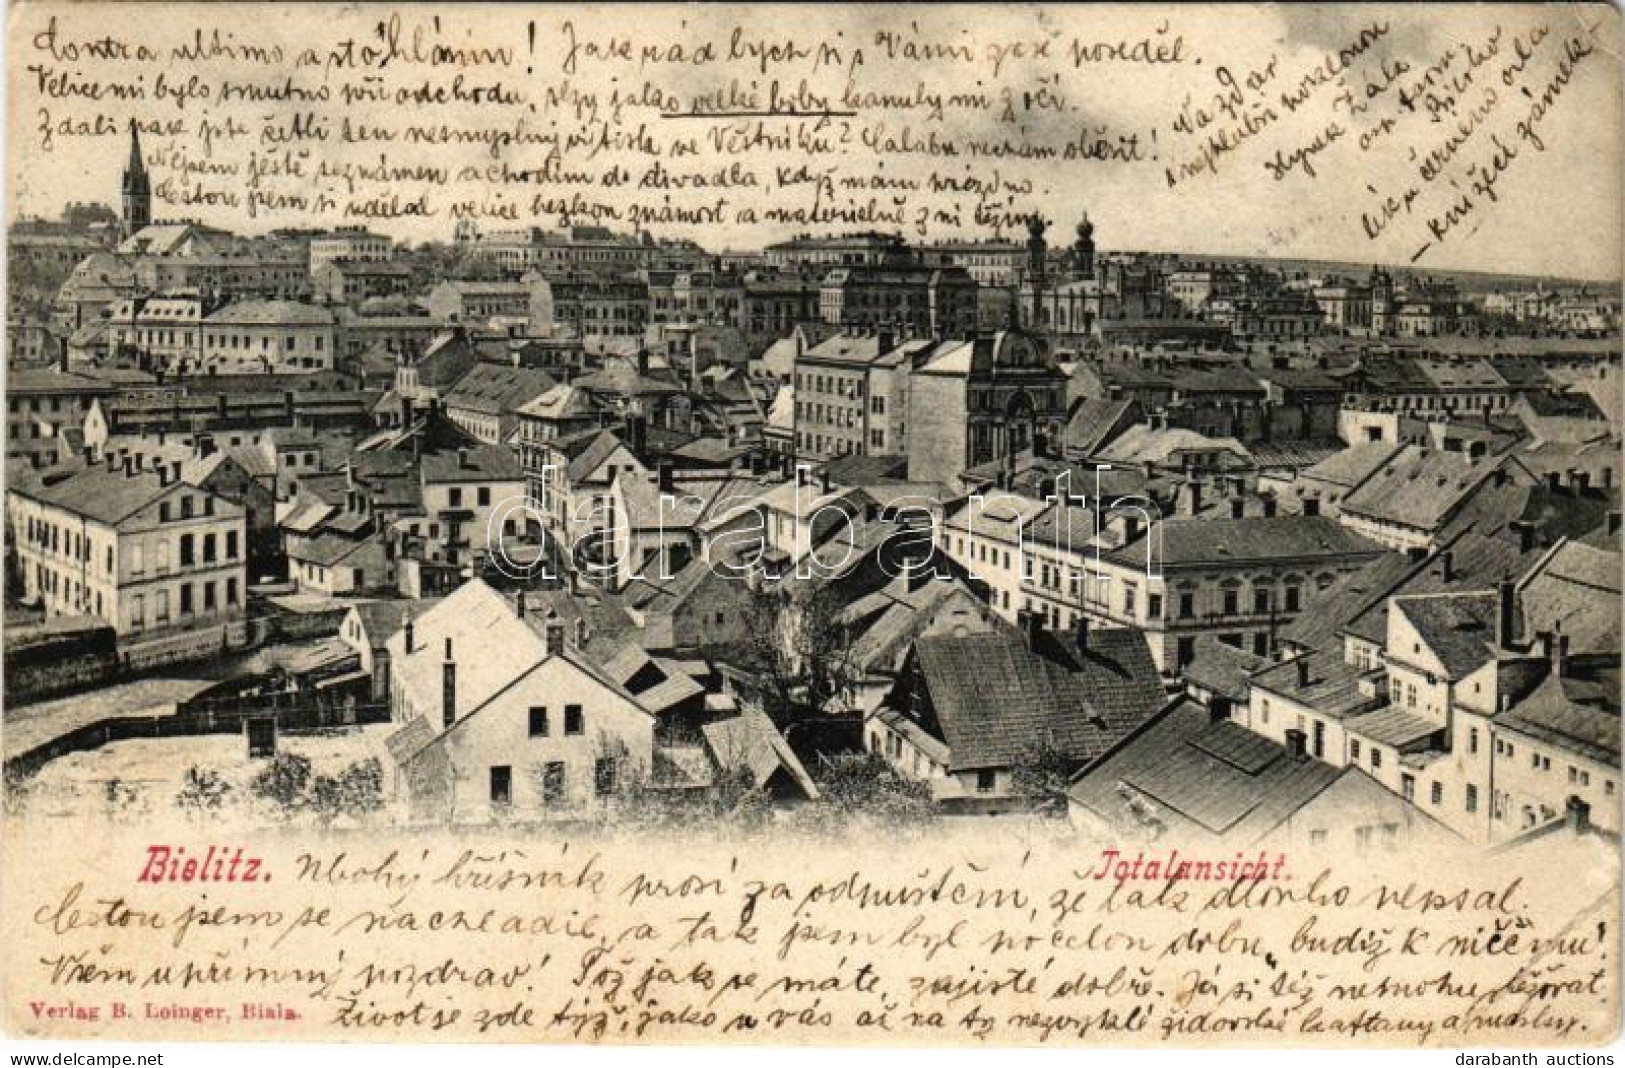 Contra ultimo a stó hlárim! Jak rád bych si s Vámi zase poseděl.
Velice mi bylo smutno při odchodu, slzy jako velké boby kanuly mi z očí.
Zdali pak jste četli ten nesmyslný výtisk ve Věstníku?
Nejsem ještě seznámen a chodím do divadla, když mám prázdno.
Cestou jsem si udělal velice hezkou známost a materielně z ní těžím.
Na zdar
Hynek Žála
Bílsko
u černého orla
knížecí zámek
Bielitz.
Totalansicht.
Ubohý hříšník prosí za odpuštění, že tak dlouho nepsal.
Cestou jsem se nachladil, a tak jsem byl po celou dobu, budiž k ničemu!
Vřém upřímný pozdrav! Též jak se máte, zajisté dobře. Já si též nemohu stěžovat.
Život je zde týž, jako u vás až na ty nezvyklé židovské kaftany a
Verlag B. Loinger, Biala.
darabanth
darabanth auctions